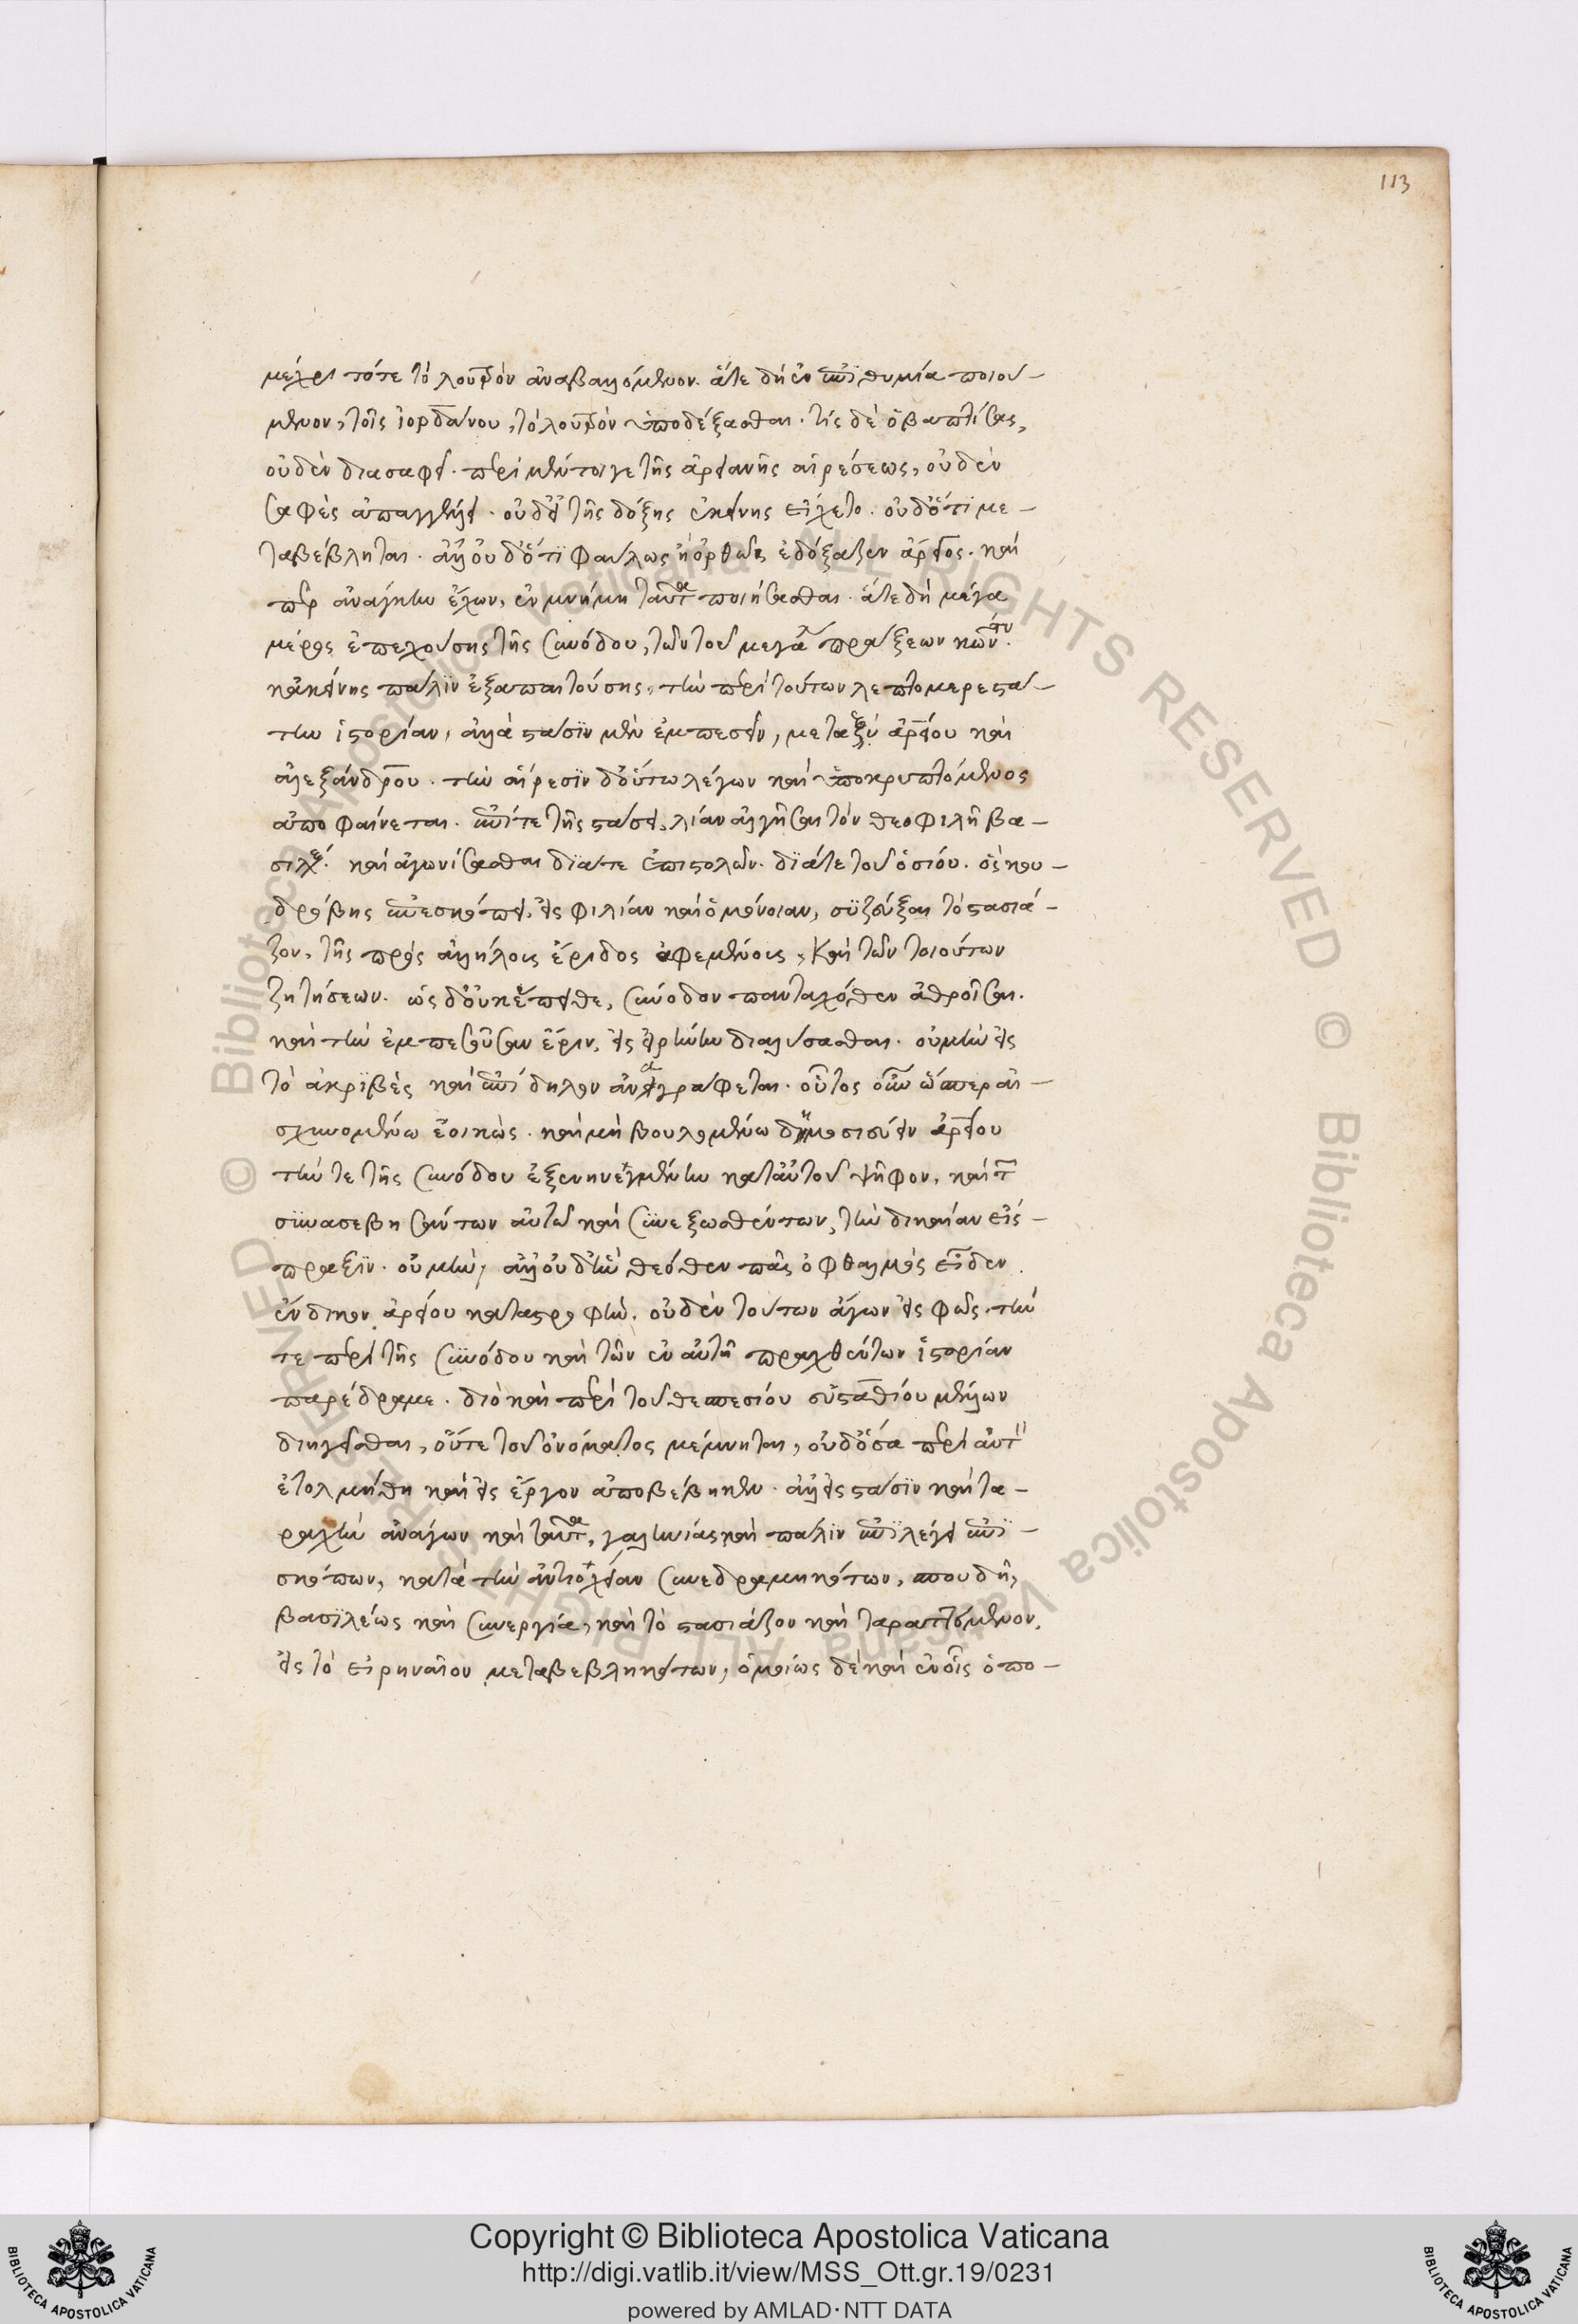 113
μέχρι τότε τὸ λουτρὸν ἀναβαλλόμενον. ἅτε δὴ ἐν ἐπϊθυμία ποιού-
μενον, τοῖς ἰορδάνου, τὸ λουτρὸν ὑποδέξασθαι. τίς δὲ ὁ βαπτίσας,
οὐδὲν διασαφεῖ. περὶ μέν τοι γε τῆς ἀρειανῆς αἱρέσεως, οὐδὲν
σαφὲς ἀπαγγέλλει. οὐδ' εἰ τῆς δόξης ἐκείνης εἴχετο. οὐδ' ὅτι με-
ταβέβληται. ἀλλ' οὐδ' ὅτϊ φαύλως ἢ ὀρθῶς ἐδόξαζεν ἄρειος. καί
περ ἀνάγκην ἔχων, ἐν μνήμη ταῦτα ποιήσασθαι. ἅτε δὴ μέγα
μέρος ἐπεχούσης τῆς συνόδου, τῶν τοῦ μεγάλου πράξεων κων.
κἀκείνης πάλϊν ἐξαπαιτούσης, τὴν περὶ τούτων λεπτομερεστά-
την ἱστορίαν, ἀλλὰ στάσϊν μὲν ἐμπεσεῖν, μεταξὺ ἀρείου καὶ
ἀλεξάνδρου. τὴν αἵρεσϊν δ' οὕτω λέγων καὶ ὑποκρυπτόμενος
ἀποφαίνεται. ἐπί τε τῆς στάσει, λίαν ἀλγῆσαι τὸν θεοφιλῆ βα-
σιλέα. καὶ ἀγωνίσασθαι διά τε ἐπιστολῶν. δϊά τε τοῦ ὁσίου. ὃς κου-
δρούβης ἐπεσκόπει, εἰς φιλίαν καὶ ὁμόνοιαν, συζεῦξαι τὸ στασιά-
ζον, τῆς πρὸς ἀλλήλους ἔριδος ἀφεμένοις, καὶ τῶν τοιούτων
ζητήσεων. ὡς δ' οὐκ ἔπειθε, σύνοδον πανταχόθεν ἀθροῖσαι.
καὶ τὴν ἐμπεσοῦσαν ἔριν, εἰς εἰρήνην διαλύσασθαι. οὐ μὴν εἰς
τὸ ἀκρϊβὲς καὶ ἐπίδηλον ἀναγράφεται. οὗτος οὖν ὥσπερ αἰ-
σχυνομένω ἐοικὼς. καὶ μὴ βουλομένω δημοσιεύειν ἀρείου
τήν τε τῆς συνόδου ἐξενηνεγμένην κατ' αὐτοῦ ψῆφον, καὶ τῶν
συνασεβησάντων αὐτῶ καὶ συνεξωσθέντων, τὴν δικαίαν εἴσ-
πραξϊν. οὐ μὴν, ἀλλ' οὐδ' ἣν θεόθεν πᾶς ὀφθαλμὸς εἶδεν
ἔνδικον ἀρείου καταστροφὴν. οὐδὲν τούτων ἄγων εἰς φῶς, τήν
τε περὶ τῆς συνόδου καὶ τῶν ἐν αὐτῆ πραχθέντων ἱστορίαν
παρέδραμε. διὸ καὶ περὶ τοῦ θεσπεσίου εὐσταθίου μέλλων
διηγεῖσθαι, οὔτε τοῦ ὀνόματος μέμνηται, οὐδ' ὅσα περὶ αὐτοῦ
ἐτολμήθη καὶ εἰς ἔργον ἀποβέβηκεν. ἀλλ' εἰς στάσϊν καὶ τα-
ραχὴν ἀνάγων καὶ ταῦτα, γαληνιάς καὶ πάλϊν ἐπϊλέγει ἐπϊ-
σκόπων, κατὰ τὴν ἀντιόχειαν συνεδραμηκότων, σπουδῆ,
βασϊλέως καὶ συνεργία, καὶ τὸ στασιάζον καὶ ταραττόμενον,
εἰς τὸ εἰρηναῖον μεταβεβληκότων, ὁμοίως δὲ καὶ ἐν οἷς ὁ πο-
Copyright © Biblioteca Apostolica Vaticana
http://digi.vatlib.it/view/MSS_Ott.gr.19/0231
powered by AMLAD·NTT DATA